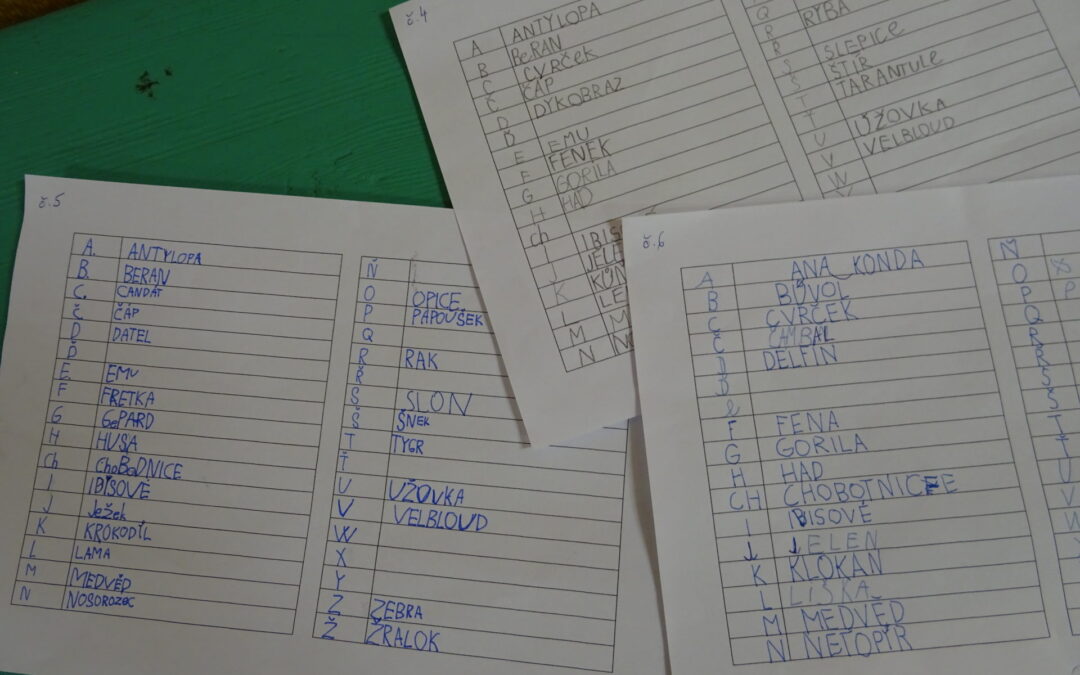 č.4
A ANTYLOPA
B BeRAN
C CVRČek
Č ČÁP
D DYKOBRAZ
Ď
E EMU
F FENEK
G GORILA
H HAD
Ch
IBIS
J JELE
K KŮŇ
L LE
M M
N
Q
R RYBA
Ř
S SLEPICE
Š ŠTÍR
T TARANTULe
Ť
U UŽOVKA
V VELBLOUD
W
č.5
A. ANTYLOPA
B. BERAN
C. CANDÁT
Č ČÁP
D DATEL
Ď
E. EMU
F FRETKA
G GePARD
H HUSA
Ch ChoBoDNICE
I IBISOVÉ
J Ježek
K KROKODÝL
L LAMA
M MEDVĚD
N NOSOROZEC
Ň
O OPICE
P PAPOUŠEK
Q
R RAK
Ř
S SLON
Š ŠNEK
T TYGR
Ť
U UŽOVKA
V VELBLOUD
W
X
Y
Z ZEBRA
Ž ŽRALOK
č.6
A ANA KONDA
B BŮVOL
C CVRČEK
Č
D DELFÍN
Ď
F FENA
G GORILA
H HAD
CH CHOBOTNICE
I IBISOVÉ
J JELEN
K KLOKAN
L LIŠKA
M MEDVĚD
N NETOPÍR
Ň
O
P P
Q
R
Ř
S
Š
T
Ť
U
V
W